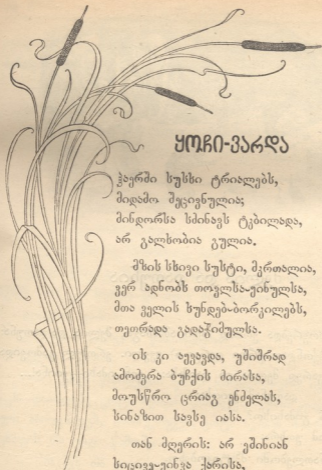 ყოჩი-ვარდა
ჰაერში სუსხი ტრიალებს,
მიდამო შეცივნულია;
მინდორსა სძინავს ტკბილადა,
არ გალხობია გულია.
მზის სხივი სუსტი, მკრთალია,
ვერ ადნობს თოვლსა-ყინულსა,
მთა ველის ხუნდებ-ბორკილებს,
თეთრადა გადაჭიმულსა.
ის კი აყვავდა, უშიშრად
ამოძვრა ბუჩქის ძირასა,
მოუსწრო ცრიაგ ენძელას,
სინაზით სავსე იასა.
თან მღერის: არ ეშინიან
სიცივე-ყინვა ქარისა,